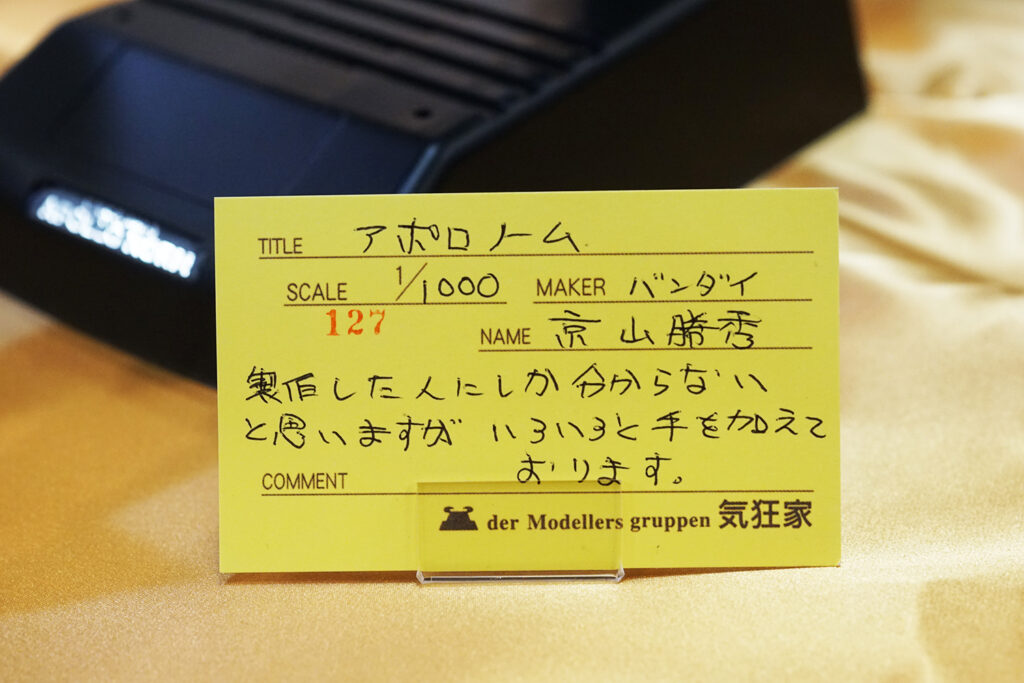 TITLE アポロノーム
SCALE 1/1000 MAKER バンダイ
127
NAME 京山勝秀
製作した人にしか分からない
と思いますが いろいろと手を加えて
おります。
COMMENT
der Modellers gruppen 気狂家